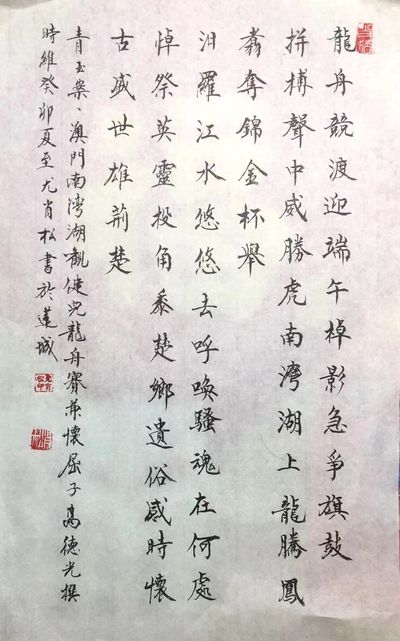 龍舟競渡迎端午棹影急爭旗鼓
拼搏聲中威勝虎南灣湖上龍騰鳳
翥奪錦金杯舉
汨羅江水悠悠去呼喚騷魂在何處
悼祭英靈投角黍楚鄉遺俗感時懷
古盛世雄荊楚
青玉案、澳門南灣湖觀健兒龍舟賽兼懷屈子高德光撰
時維癸卯夏至尤肖松書於蓮城